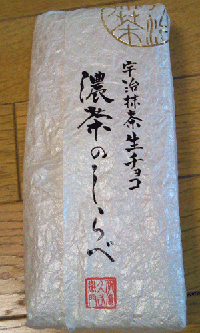 宇治抹茶生チョコ
濃茶のしらべ